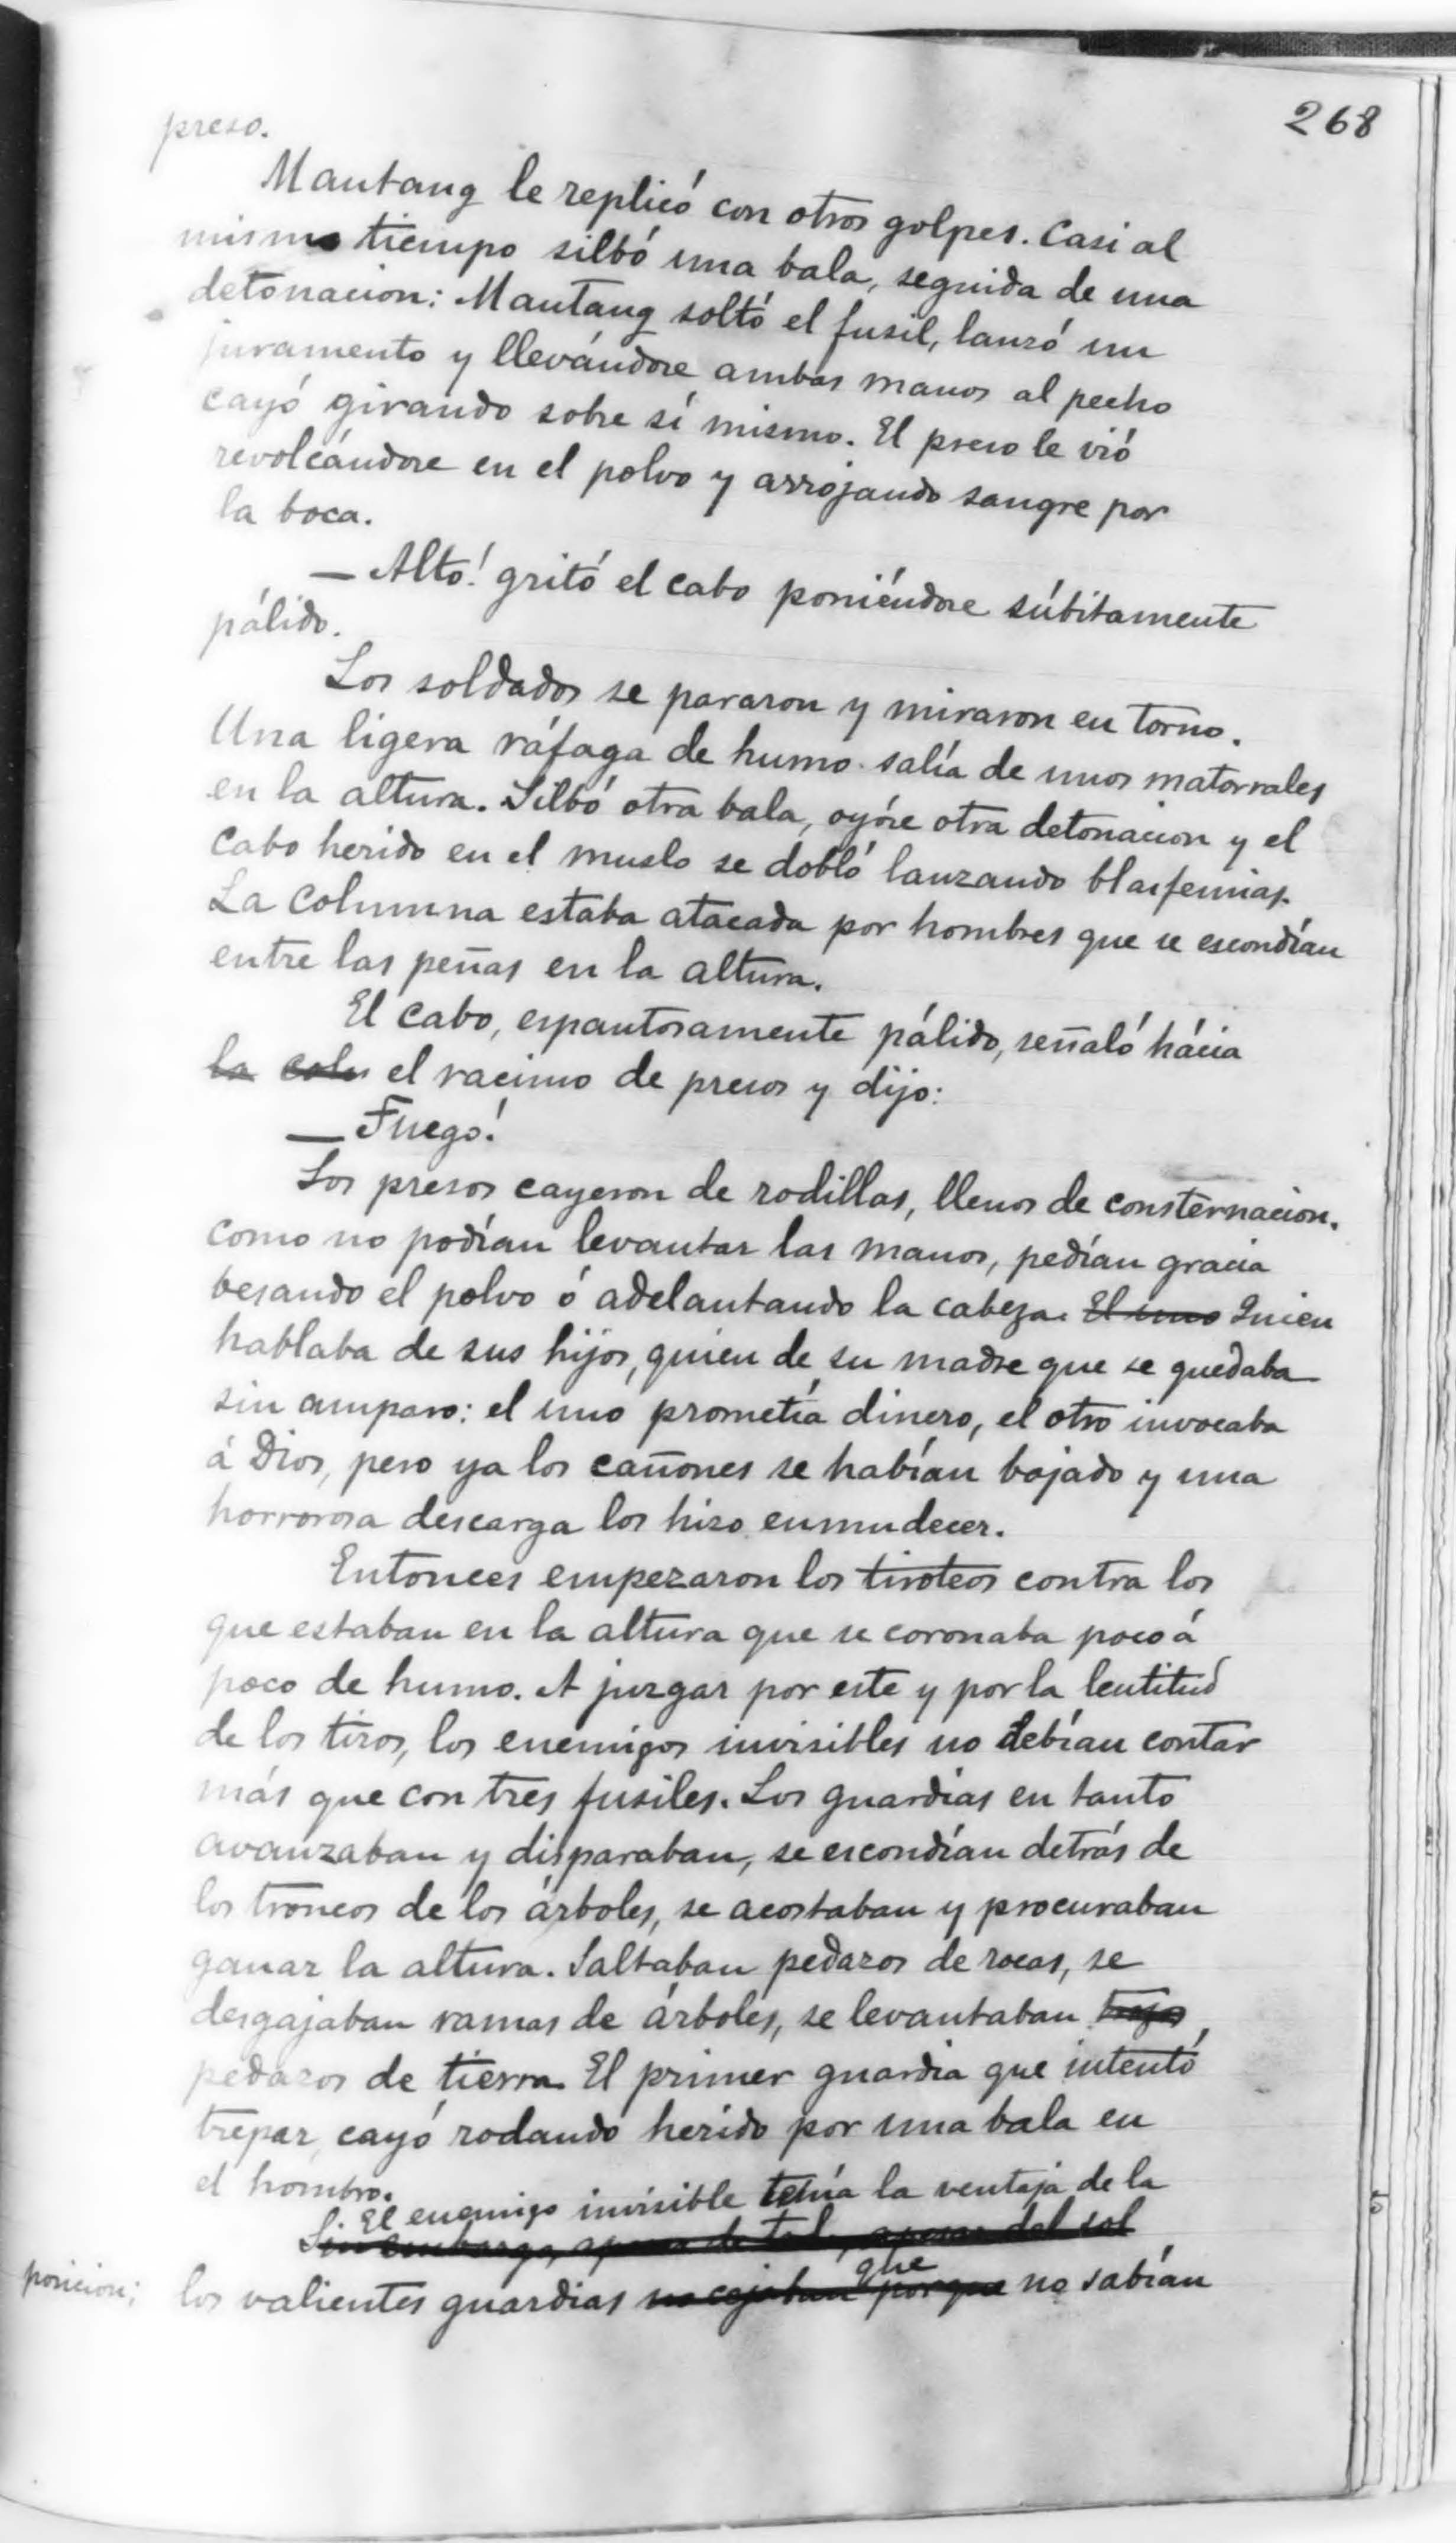 268
preso.
Mautang le replicó con otros golpes. Casi al
mismo tiempo silbó una bala, seguida de una
detonacion: Mautang soltó el fusil, lanzó un
juramento y llevándose ambas manos al pecho
cayó girando sobre sí mismo. El preso le vió
revolcándose en el polvo y arrojando sangre por
la boca.
— Alto! gritó el cabo poniéndose súbitamente
pálido.
Los soldados se pararon y miraron en torno.
Una ligera ráfaga de humo salía de unos matorrales
en la altura. Silbó otra bala, oyóse otra detonacion y el
cabo herido en el muslo se dobló lanzando blasfemias.
La columna estaba atacada por hombres que se escondían
entre las peñas en la altura.
El cabo, espantosamente pálido, señaló hácia
la colu el racimo de presos y dijo:
— Fuego!
Los presos cayeron de rodillas, llenos de consternacion.
como no podían levantar las manos, pedían gracia
besando el polvo ó adelantando la cabeza. El uno Quien
hablaba de sus hijos, quien de su madre que se quedaba
sin amparo: el uno prometía dinero, el otro invocaba
á Dios, pero ya los cañones se habían bajado y una
horrorosa descarga los hizo enmudecer.
Entonces empezaron los tiroteos contra los
que estaban en la altura que se coronaba poco á
poco de humo. A juzgar por este y por la lentitud
de los tiros, los enemigos invisibles no debían contar
más que con tres fusiles. Los guardias en tanto
avanzaban y disparaban, se escondían detrás de
los troncos de los árboles, se acostaban y procuraban
ganar la altura. Saltaban pedazos de rocas, se
desgajaban ramas de árboles, se levantaban
pedazos de tierra. El primer guardia que intentó
trepar, cayó rodando herido por una bala en
el hombro.
El enemigo invisible tenía la ventaja de la
Sin embargo, apesar de todo, apesar del sol
posicion;
que
los valientes guardias no cejaban porque no sabían